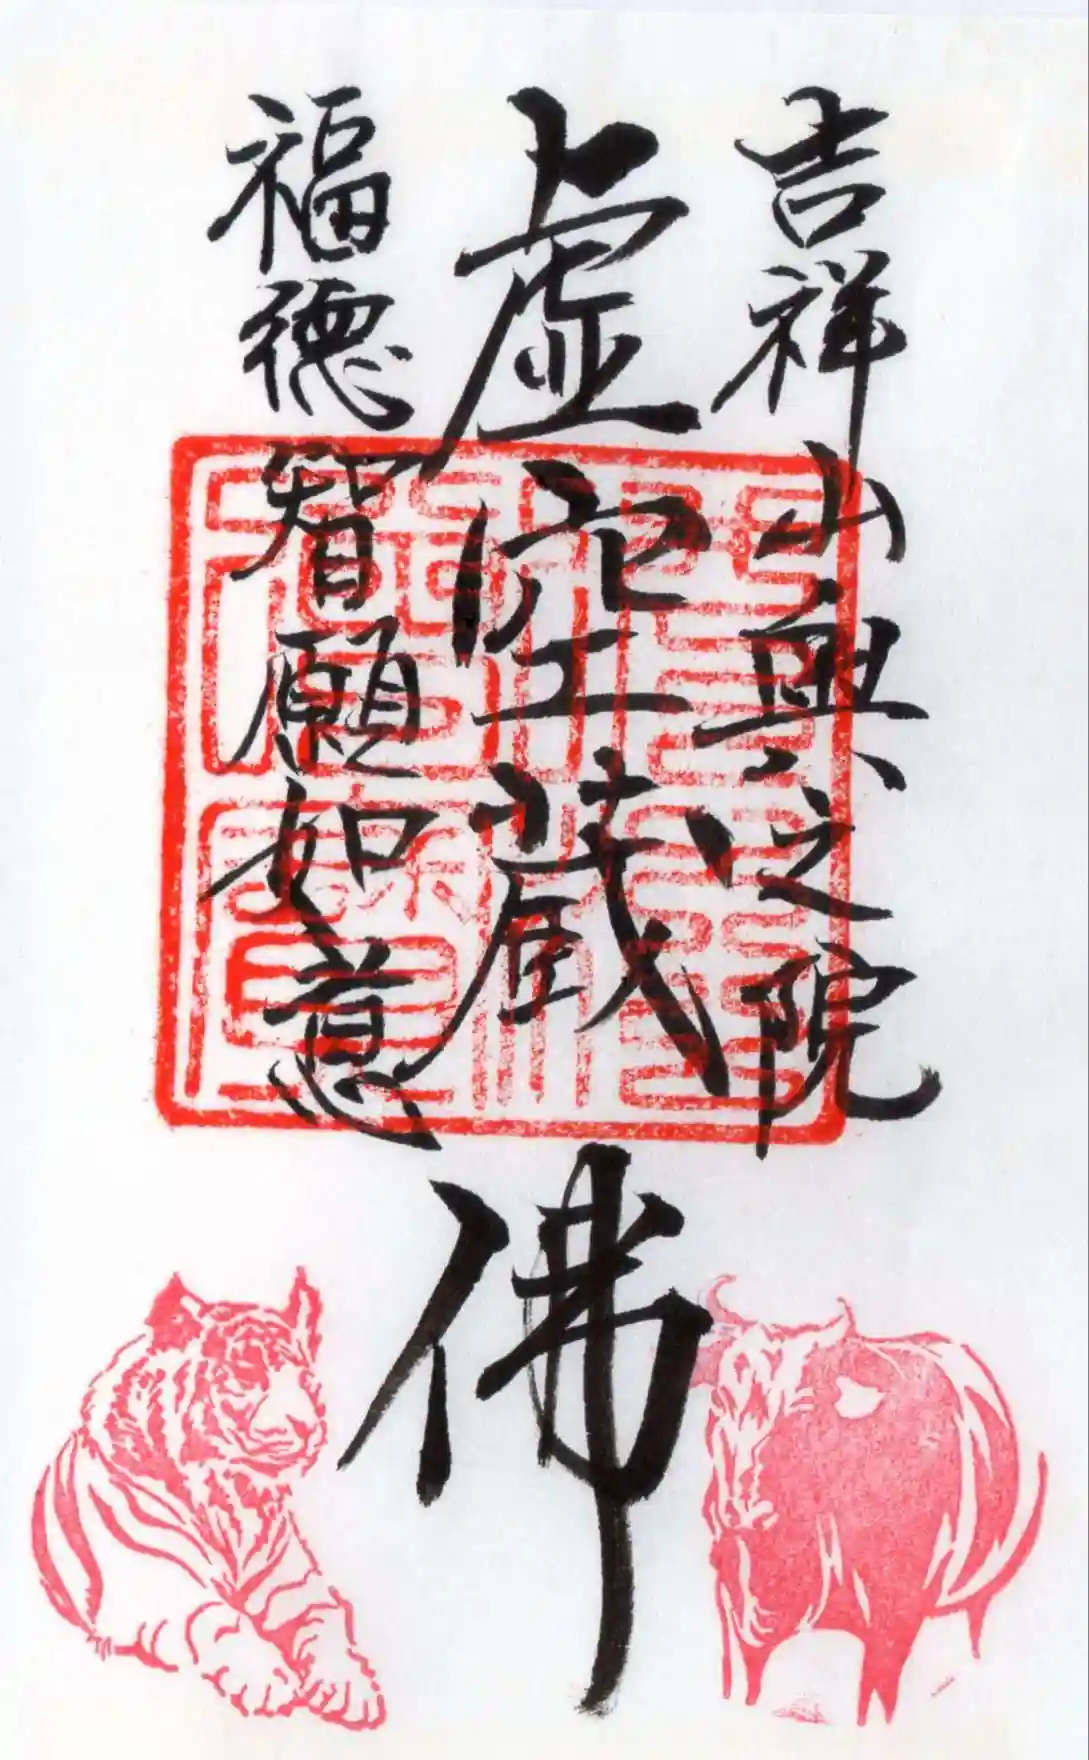 吉祥山奥之院
虚空蔵佛
福徳智願如意